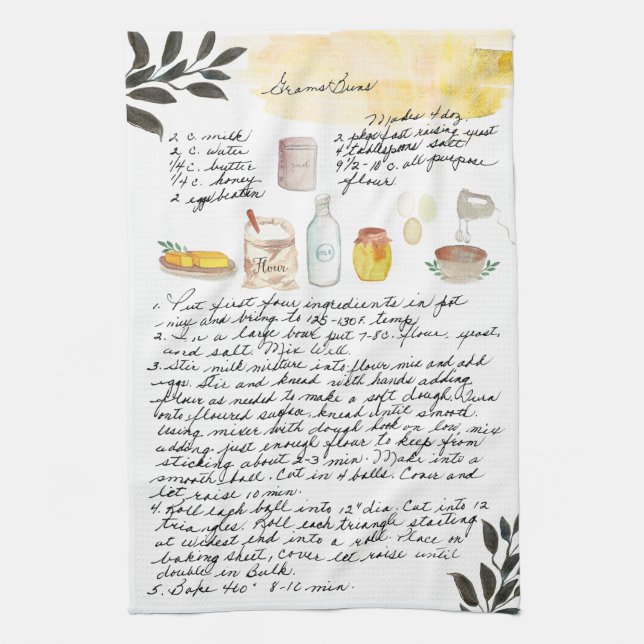 Grams Buns
Makes 4 doz.
2 c. milk
2 c. water
1/4 c. butter
1/4 c. honey
2 eggs beaten
2 pkgs fast raising yeast
4 tablespoons salt
9 1/2-10 c. all purpose
flour.
Flour
MILK
1. Put first four ingredients in pot
mix and bring to 125-130 F. temp
2. In a large bowl put 7-8 c. flour, yeast,
and salt. Mix Well.
3. Stir milk mixture into flour mix and add
eggs. Stir and knead with hands adding
flour as needed to make a soft dough. Turn
onto floured surface, knead until smooth.
Using mixer with dough hook on low, mix
adding just enough flour to keep from
sticking about 2-3 min. Make into a
smooth ball. Cut in 4 balls. Cover and
let raise 10 min.
4. Roll each ball into 12" dia. Cut into 12
triangles. Roll each triangle starting
at widest end into a roll. Place on
baking sheet, cover let raise until
double in Bulk.
5. Bake 400° 8-10 min.